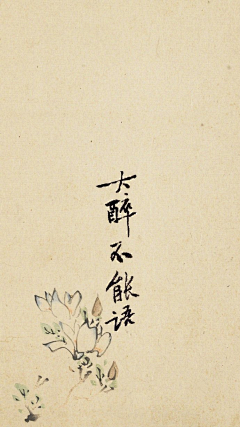 大醉不能语